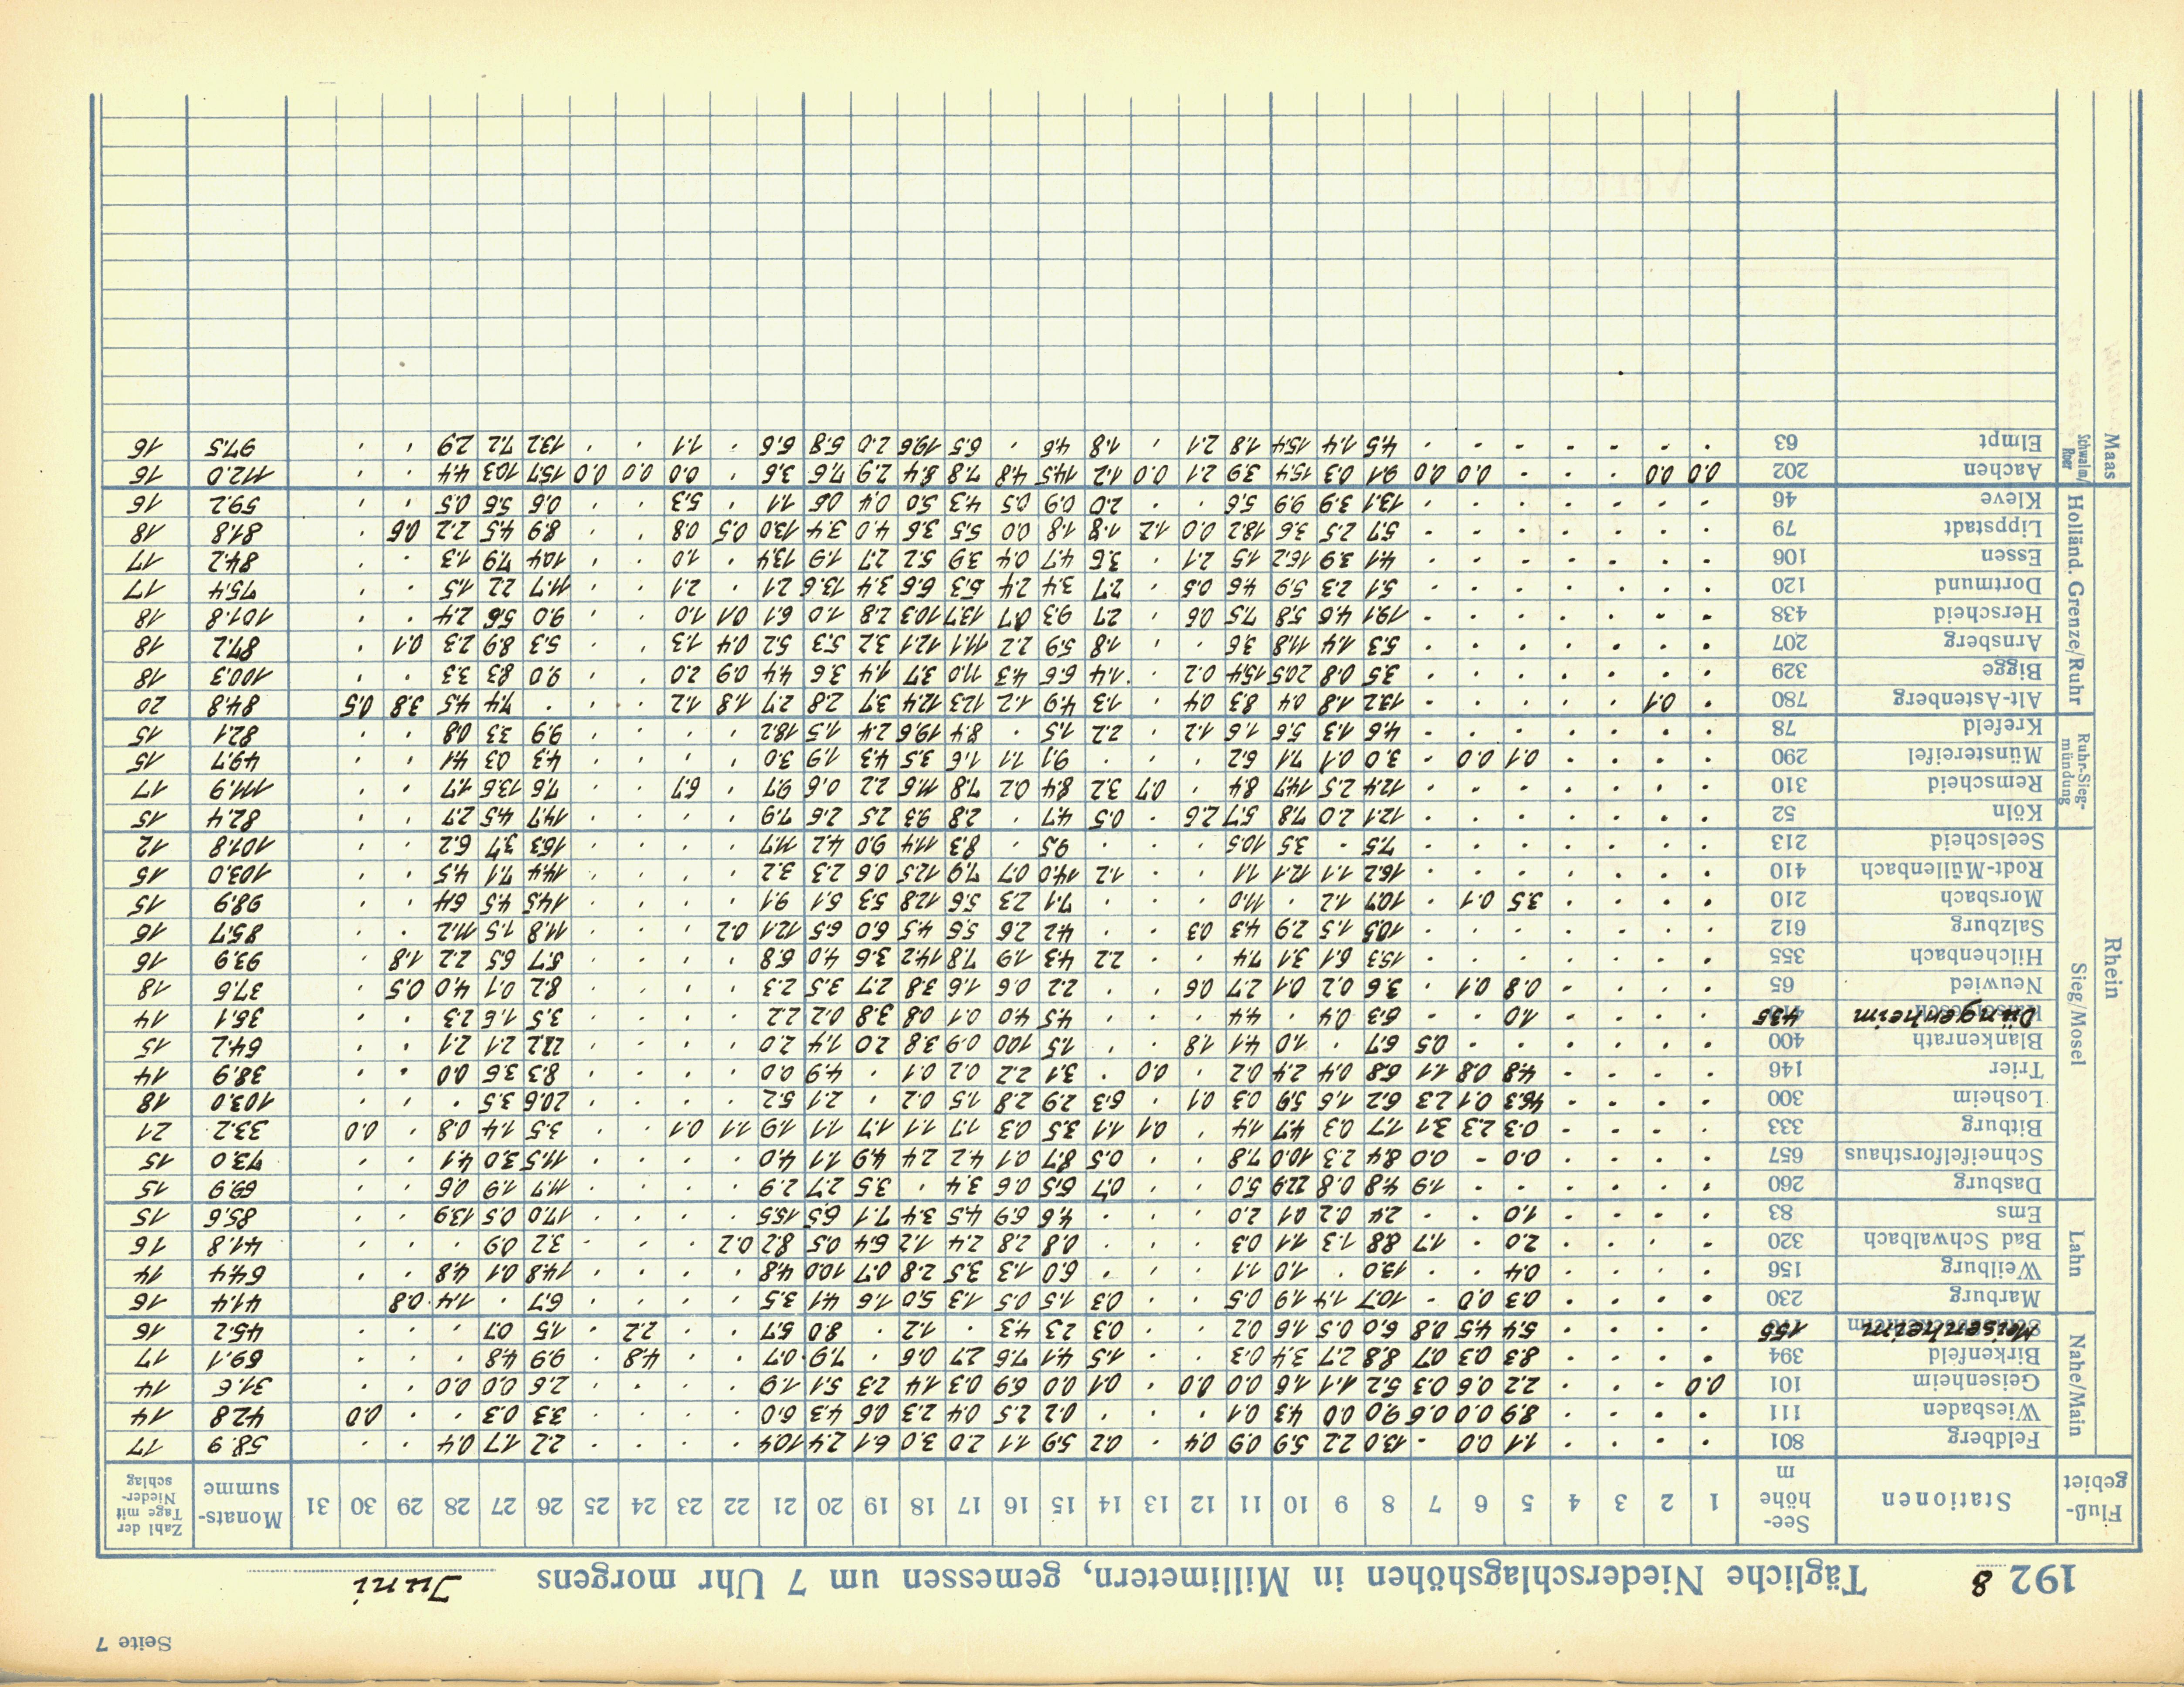 Seite 7
192 8 Tägliche Niederschlagshöhen in Millimetern, gemessen um 7 Uhr morgens Juni
Fluß-gebiet Stationen See-höhe m 1 2 3 4 5 6 7 8 9 10 11 12 13 14 15 16 17 18 19 20 21 22 23 24 25 26 27 28 29 30 31 Monats-summe Zahl der Tage mit Nieder-schlag
Rhein
Nahe/Main
Feldberg 801 . . . . 1.1 0.0 - 13.0 2.2 5.9 0.9 0.4 . 0.2 5.9 1.1 2.0 3.0 6.1 2.4 10.4 . . . . 2.2 1.7 0.4 . . 58.9 17
Wiesbaden 111 . . . . 8.9 0.0 0.6 9.0 0.0 4.3 0.1 . . . 0.2 2.5 0.4 2.3 0.6 4.3 6.0 . . . . 3.3 0.3 . . 0.0 42.8 14
Geisenheim 101 0.0 . . . 2.2 0.6 0.3 5.2 1.1 1.6 0.0 0.0 . 0.1 0.0 6.9 0.3 1.4 2.3 5.1 1.9 . . . . 2.6 0.0 0.0 . . 31.6 14
Birkenfeld 394 . . . . 8.3 0.3 0.7 8.8 2.7 3.4 0.3 . . 1.5 4.1 7.6 2.7 0.6 . 7.9 0.7 . . 4.8 . 9.9 4.8 . . . 69.1 17
Meisenheim 155 . . . . 5.4 4.5 0.8 6.0 0.5 1.6 0.2 . . 0.3 2.3 4.3 . 1.2 . 8.0 5.7 . . 2.2 . 1.5 0.7 . . . 45.2 16
Lahn
Marburg 230 . . . . 0.3 0.0 - 10.7 1.4 1.9 0.5 . . 0.3 1.5 0.5 1.3 5.0 1.6 4.1 3.5 . . . . 6.7 . 1.4 0.8 . 41.4 16
Weilburg 156 . . . . 0.4 . . 13.0 . 1.0 1.1 . . . 6.0 1.3 3.5 2.8 0.7 10.0 4.8 . . . . 14.8 0.1 4.8 . . 64.4 14
Bad Schwalbach 320 . . . . 2.0 . 1.7 8.8 1.3 1.1 0.3 . . . 0.8 2.8 2.4 1.2 6.4 0.5 8.2 0.2 . . . 3.2 0.9 . . . 41.8 16
Ems 83 . . . . 1.0 . . 2.4 0.2 0.1 2.0 . . . 4.6 6.9 4.5 3.4 7.1 6.5 15.5 . . . . 17.0 0.5 13.9 . . 85.6 15
Sieg/Mosel
Dasburg 260 . . . . . . 1.9 4.8 0.8 22.9 5.0 . . 0.7 6.5 0.6 3.4 . 3.5 2.7 2.9 . . . . 11.7 1.9 0.6 . . 69.9 15
Schneifelforsthaus 657 . . . . 0.0 - 0.0 8.4 2.3 10.0 7.8 . . 0.5 8.7 0.1 4.2 2.4 4.9 1.1 4.0 . . . . 11.5 3.0 4.1 . . 73.0 15
Bitburg 333 . . . . 0.3 2.3 3.1 1.7 0.3 4.7 1.4 . 0.1 1.1 3.5 0.3 1.7 1.1 1.7 1.1 1.9 1.1 0.1 . . 3.5 1.4 0.8 . 0.0 33.2 21
Losheim 300 . . . . 46.3 0.1 2.3 6.2 1.6 5.9 0.3 0.1 . 6.3 2.9 2.8 1.5 0.2 . 2.1 5.2 . . . . 20.6 3.5 . . . 103.0 18
Trier 146 . . . . 4.8 0.8 1.1 6.8 0.4 2.4 0.2 . 0.0 . 3.1 2.2 0.2 0.1 . 4.9 0.0 . . . . 8.3 3.6 0.0 . . 38.9 14
Blankenrath 400 . . . . . . 0.5 6.7 . 1.0 4.1 1.8 . . 1.5 10.0 0.9 3.8 2.0 1.4 2.0 . . . . 22.2 2.1 2.1 . . 64.2 15
Düngenheim 435 . . . . 1.0 . . 6.3 0.4 . 4.4 . . . 4.5 4.0 0.1 0.8 3.8 0.2 2.2 . . . . 3.5 1.6 2.3 . . 36.1 14
Neuwied 65 . . . . 0.8 0.1 . 3.6 0.2 0.1 2.7 0.6 . . 2.2 0.6 1.6 3.8 2.7 3.5 2.3 . . . . 8.2 0.1 4.0 0.5 . 37.6 18
Hilchenbach 355 . . . . . . . 15.3 6.1 3.1 7.4 . . 2.2 4.3 1.9 7.8 14.2 3.6 4.0 6.8 . . . . 5.7 6.5 2.2 1.8 . 93.9 16
Salzburg 612 . . . . . . . 10.5 1.5 2.9 4.3 0.3 . . 4.2 2.6 5.6 4.5 6.0 6.5 12.1 0.2 . . . 11.8 1.5 11.2 . . 85.7 16
Morsbach 210 . . . . 3.5 0.1 . 10.7 1.2 . 11.0 . . . 7.1 2.3 5.6 12.8 5.3 5.1 9.1 . . . . 14.5 4.5 6.4 . . 98.9 15
Rodt-Müllenbach 410 . . . . . . . 16.2 1.1 12.1 1.1 . . 1.2 14.0 0.7 7.9 12.5 0.6 2.3 3.2 . . . . 14.4 7.1 4.5 . . 103.0 15
Seelscheid 213 . . . . . . . 7.5 - 3.5 10.5 . . . 9.5 . 8.3 11.4 9.0 4.2 11.7 . . . . 16.3 3.7 6.2 . . 101.8 12
Ruhr-Sieg-mündung
Köln 52 . . . . . . . 12.1 2.0 7.8 5.7 2.6 . 0.5 4.7 . 2.8 9.3 2.5 2.6 7.9 . . . . 14.7 4.5 2.7 . . 82.4 15
Remscheid 310 . . . . . . . 12.4 2.5 14.7 8.4 . 0.7 3.2 8.4 0.2 7.8 11.6 2.2 0.6 9.7 . 6.7 . . 7.6 13.6 1.7 . . 111.9 17
Münstereifel 290 . . . . 0.1 0.0 - 3.0 0.1 7.1 6.2 . . . 9.1 1.1 1.6 3.5 4.3 1.9 3.0 . . . . 4.3 0.3 4.1 . . 49.7 15
Krefeld 78 . . . . . . . 4.6 1.3 5.6 1.6 1.2 . 2.2 1.5 . 8.4 19.6 2.4 1.5 18.2 . . . . 9.9 3.3 0.8 . . 82.1 15
Holländ. Grenze/Ruhr
Alt-Astenberg 780 . 0.1 . . . . . 13.2 1.8 0.4 8.3 0.4 . 1.3 4.9 1.2 12.3 12.4 3.7 2.8 2.7 1.8 1.2 . . . 7.4 4.5 3.8 0.5 84.8 20
Bigge 329 . . . . . . . 3.5 0.8 20.5 15.4 0.2 . 1.4 6.6 4.3 11.0 3.7 1.4 3.6 4.4 0.9 2.0 . . 9.0 8.3 3.3 . . 100.3 18
Arnsberg 207 . . . . . . . 5.3 1.4 11.8 3.6 . . 1.8 5.9 2.2 11.1 12.1 3.2 5.3 5.2 0.4 1.3 . . 5.3 8.9 2.3 0.1 . 87.2 18
Herscheid 438 . . . . . . . 19.1 4.6 5.8 7.5 0.6 . 2.7 9.3 0.7 13.7 10.3 2.8 1.0 6.1 0.1 1.0 . . 9.0 5.6 2.4 . . 101.8 18
Dortmund 120 . . . . . . . 5.1 2.3 5.9 4.6 0.5 . 2.7 3.4 2.4 6.3 6.6 3.4 13.6 2.1 . 2.1 . . 11.7 2.2 1.5 . . 75.4 17
Essen 106 . . . . . . . 4.1 3.9 16.2 1.5 2.1 . 3.6 4.7 0.4 3.9 5.2 2.7 1.9 13.4 . 1.0 . . 10.4 7.9 1.3 . . 84.2 17
Lippstadt 79 . . . . . . . 5.7 2.5 3.6 18.2 0.0 1.2 1.8 1.8 0.0 5.5 3.6 4.0 3.4 13.0 0.5 0.8 . . 8.9 4.5 2.2 0.6 . 81.8 18
Kleve 46 . . . . . . . 13.1 3.9 9.9 5.6 . . 2.0 0.9 0.5 4.3 5.0 0.4 0.6 1.1 . 5.3 . . 0.6 5.5 0.5 . . 59.2 16
Maas
Schwalm/Roer
Aachen 202 0.0 0.0 . . . 0.0 0.0 9.1 0.3 15.4 3.9 2.1 0.0 1.2 14.5 4.8 7.8 8.4 2.9 7.6 3.6 . 0.0 0.0 0.0 15.7 10.3 4.4 . . 112.0 16
Elmpt 63 . . . . . . . 4.5 1.4 15.4 1.8 2.1 . 1.8 4.6 . 6.5 19.6 2.0 5.8 6.6 . 1.1 . . 13.2 7.2 2.9 . . 97.5 16